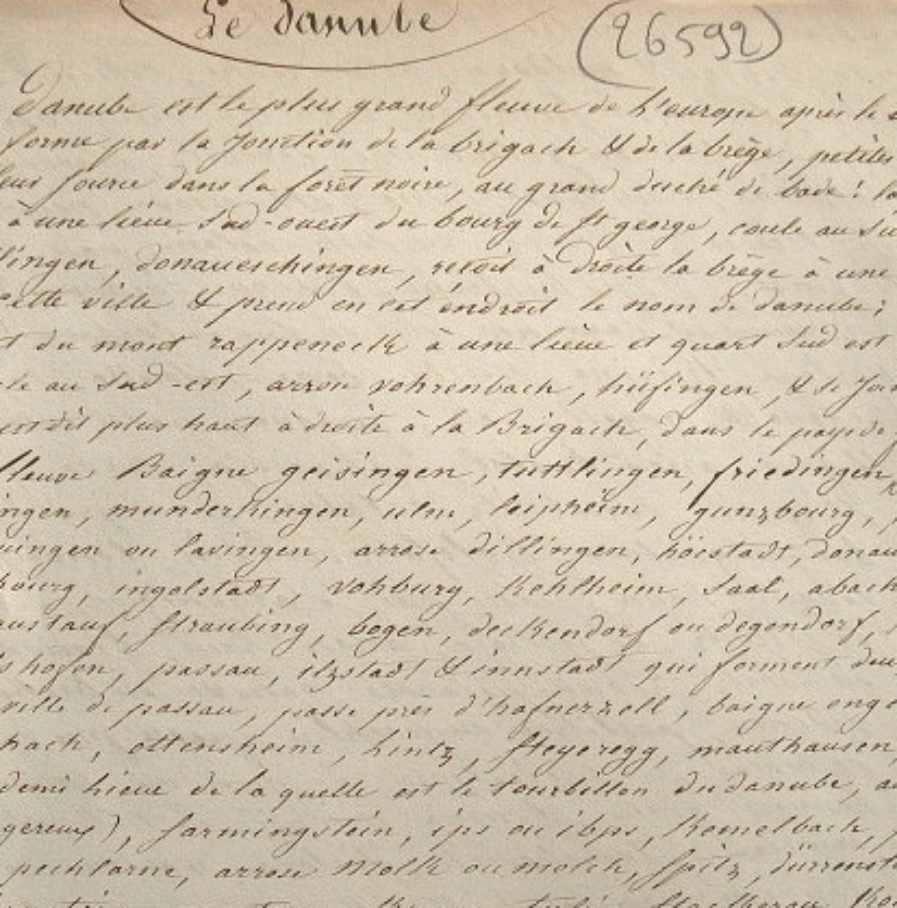 Le Danube
(26592)
Danube est le plus grand fleuve de L'europe après le
forme par la Jonction de la brigach & de la brège, petites
leur source dans la forêt noire, au grand duché de bade: la
à une lieue Sud-ouest du bourg de St george, coule au Su
llingen, donaueschingen, reçoit à droite la brège à une
cette ville & prend en cet endroit le nom de danube;
t du mont rappeneck à une lieue et quart Sud est
le au Sud-est, arrose vohrenbach, hüfingen, & se Join
dit plus haut à droite à la Brigach, dans le pays de
fleuve Baigne geisingen, tuttlingen, friedingen,
ingen, munderkingen, ulm, leipheim, gunzbourg,
uingen ou lavingen, arrose dillingen, höcstadt, donau
bourg, ingolstadt, vohburg, Kehlheim, Saal, abach
austauf, Straubing, bogen, deckendorf ou degendorf,
shofen, passau, ilzstadt & innstadt qui forment
ville de passau, passe près d'hafnerzell, baigne enge
hach, ottensheim, Lintz, Steyeregg, mauthausen,
demi Lieue de la quelle est le tourbillon du danube, a
gereux), Sarmingstein, ips ou ibps, Kemelbach,
pechlarne, arrose Molk ou molck, Spitz, dürrenst